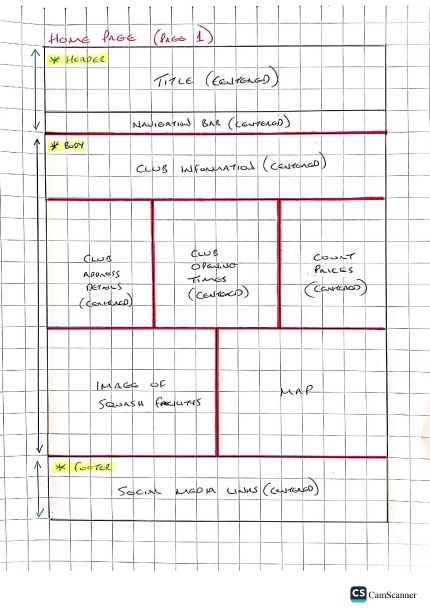 HOME PAGE (PAGE 1)
* HEADER
TITLE (CENTERED)
NAVIGATION BAR (CENTERED)
* BODY
CLUB INFORMATION (CENTERED)
CLUB
ADDRESS
DETAILS
(CENTERED)
CLUB
OPENING
TIMES
(CENTERED)
COURT
PRICES
(CENTERED)
IMAGE OF
SQUASH FACILITIES
MAP
* FOOTER
SOCIAL MEDIA LINKS (CENTERED)
CS CamScanner